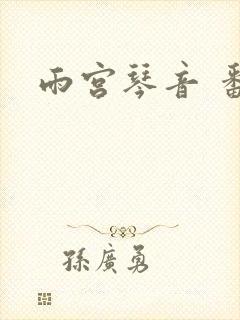 雨宫琴音
孫廣勇